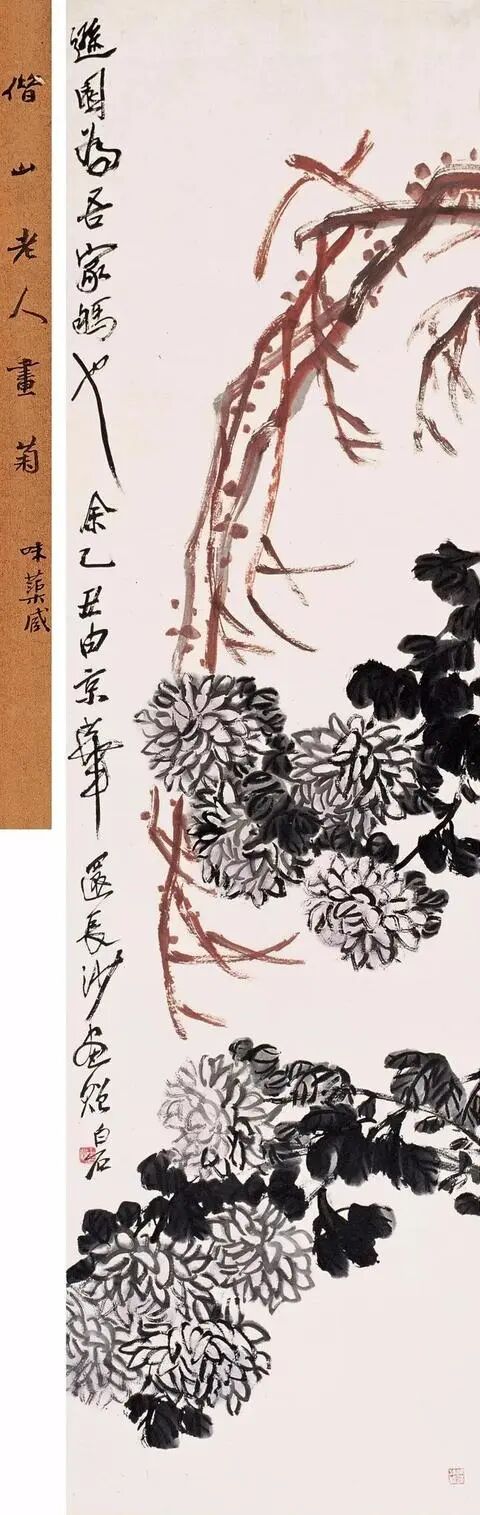 借山老人畫菊
味
園為吾家也余乙丑由京華還長沙画白石